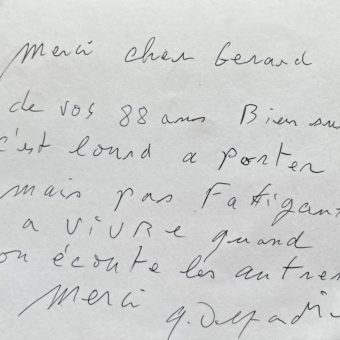 Merci cher Gerard
de vos 88 ans Bien su
c'est lourd a porter
mais pas Fatigan
a VIVRE quand
on écoute les autres
Merci